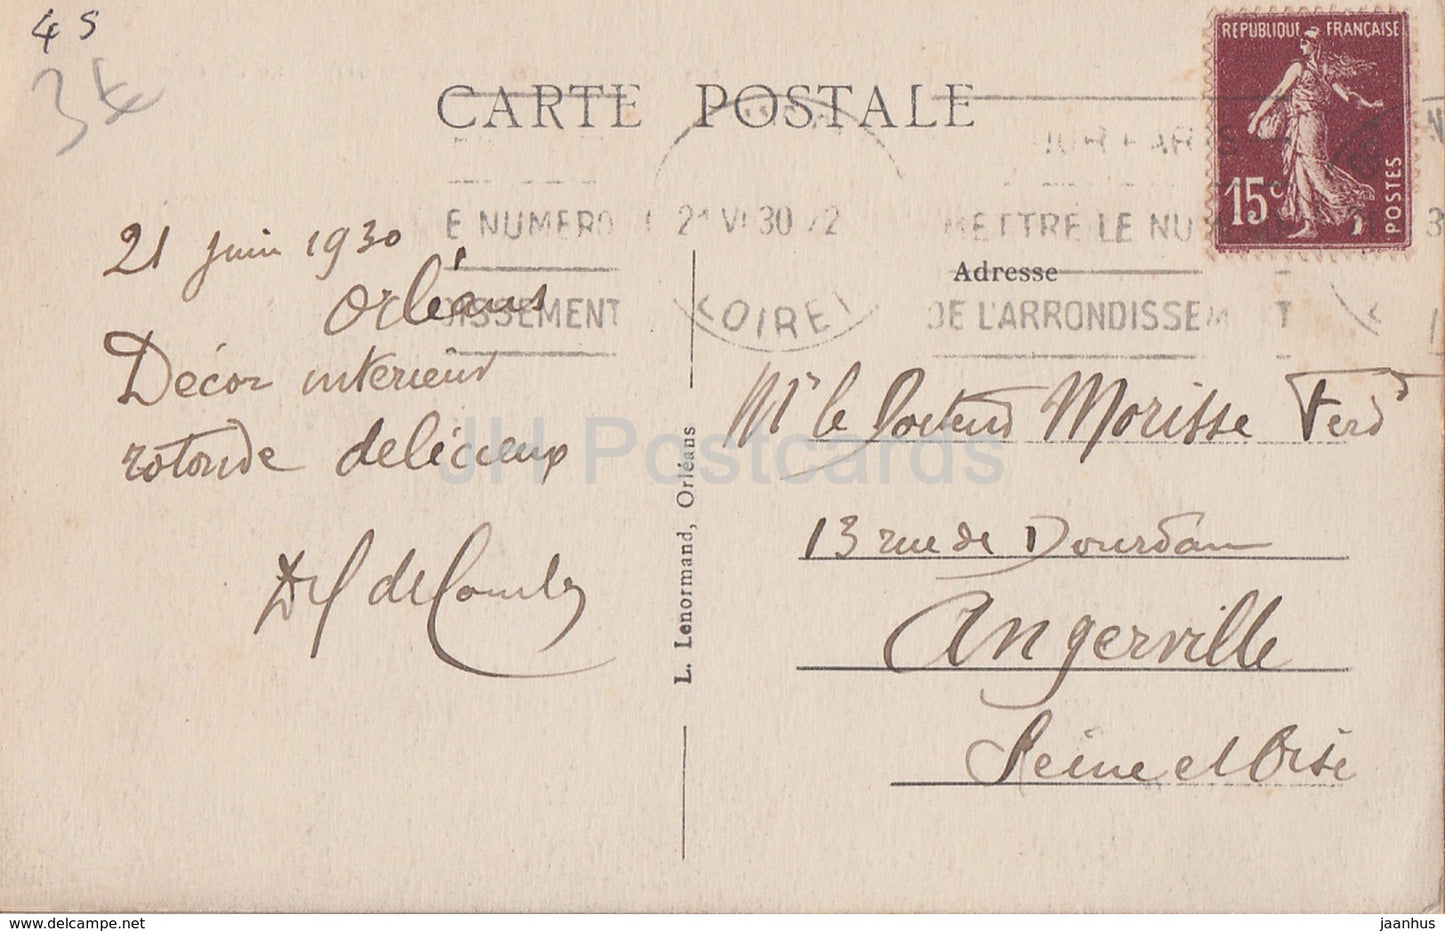 45
34
CARTE POSTALE
REPUBLIQUE FRANÇAISE
15c
POSTES
E NUMERO
21 VI 30
METTRE LE NU
DISSEMENT
LOIRET
DE L'ARRONDISSEM T
21 juin 1930
Orléans
Décor interieur
rotonde delicieux
de
Adresse
Mr le Docteur Morisse Ferd
13 rue de Dourdan
Angerville
Seine et Oise
L. Lenormand, Orléans
JH Postcards
www.delcampe.net
jaanhus